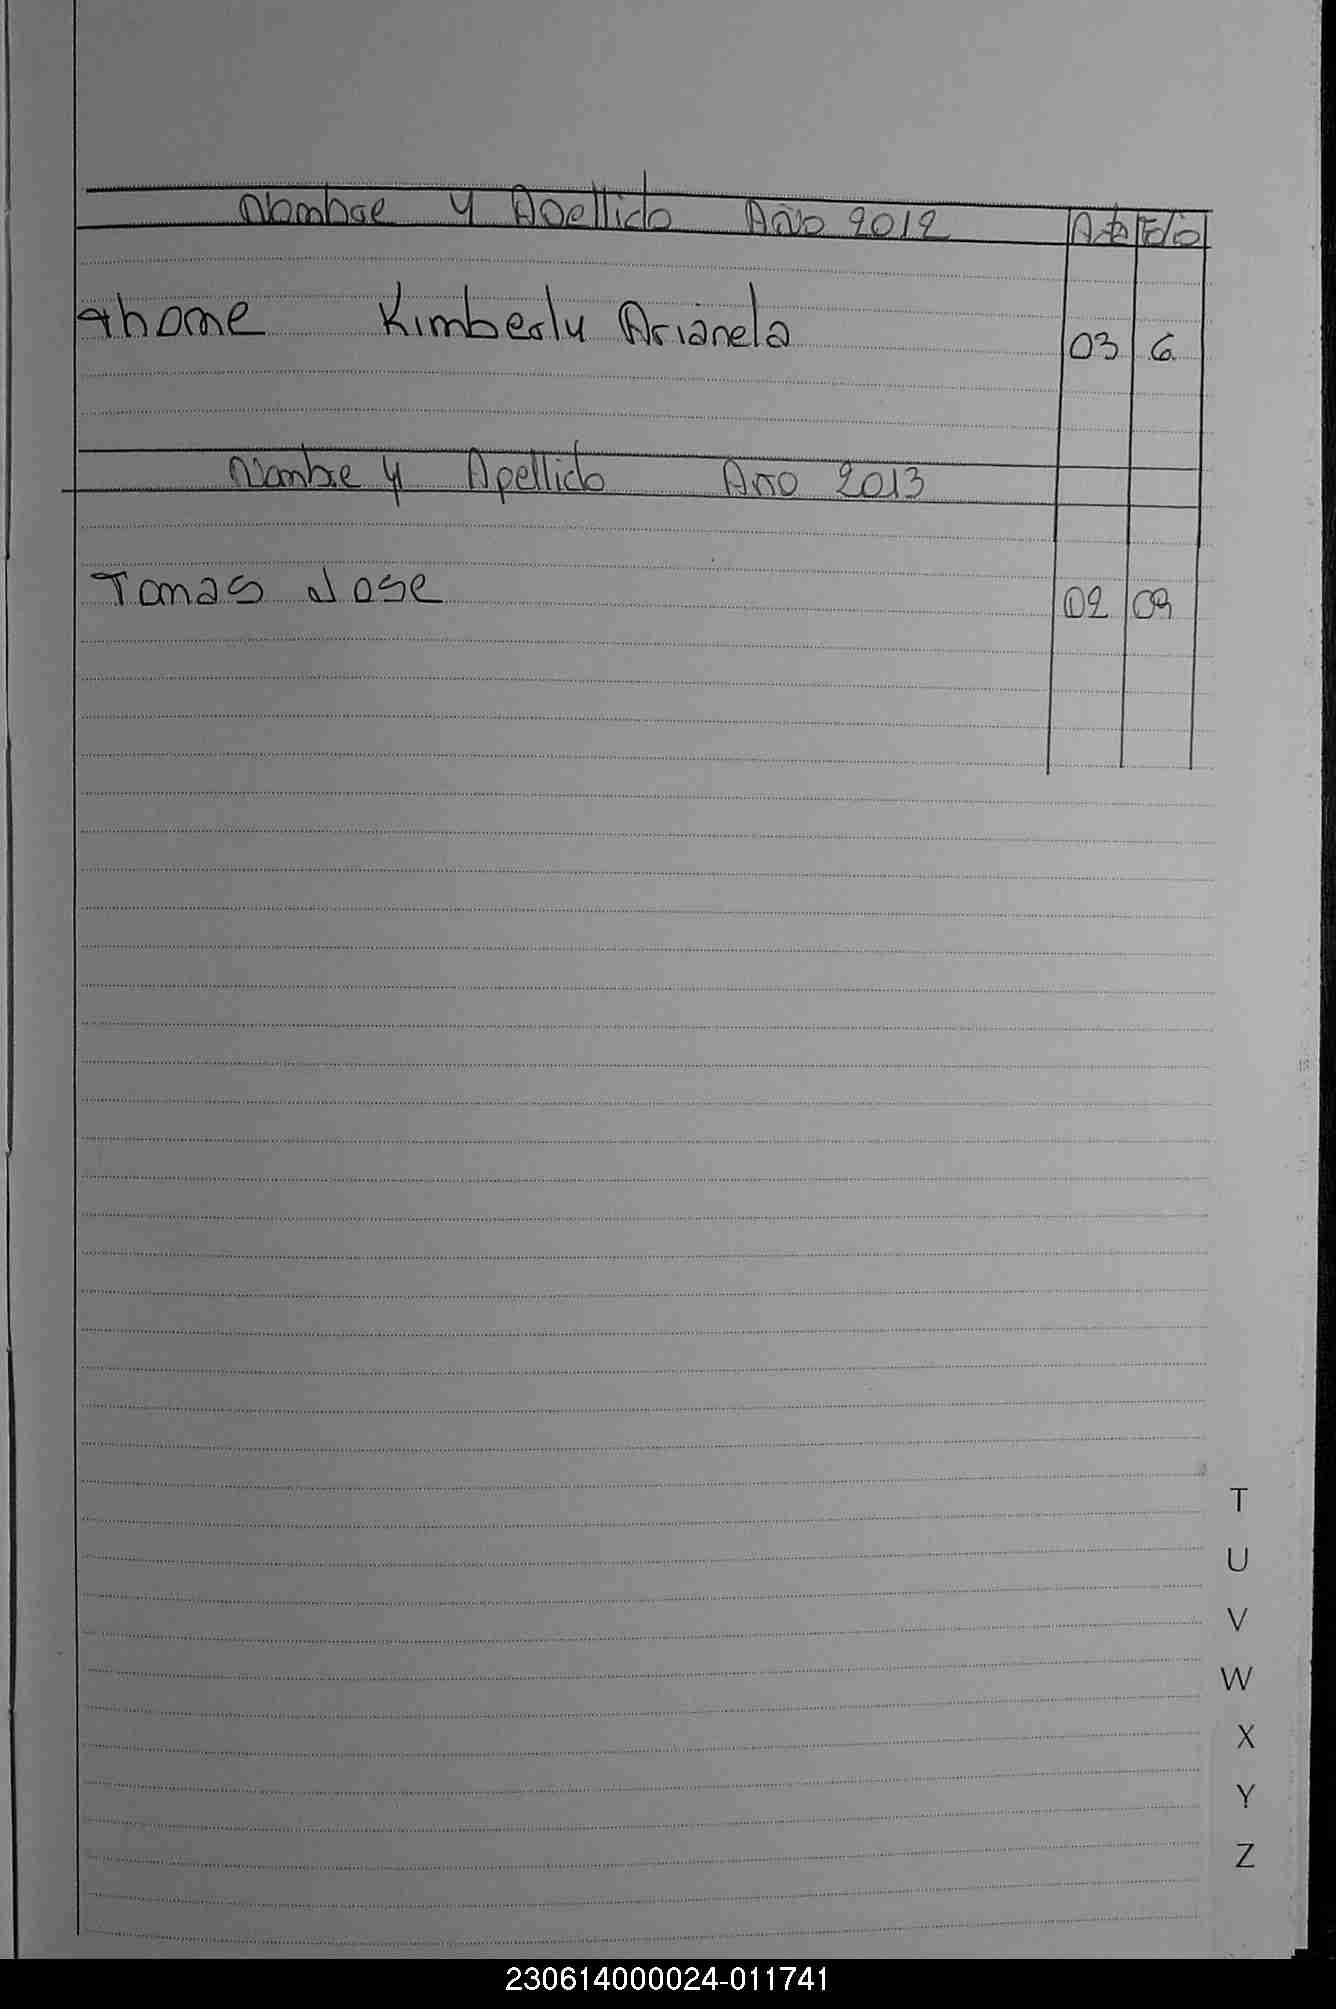 Nombre y Apellido Año 2012 Acta Folio
thome Kimberly Arianela 03 6
Nombre y Apellido Año 2013
Tomas Jose 02 09
T
U
V
W
X
Y
Z
230614000024-011741